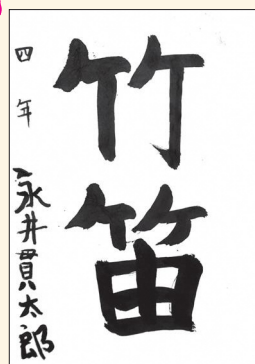 竹笛
四年
永井貫太郎